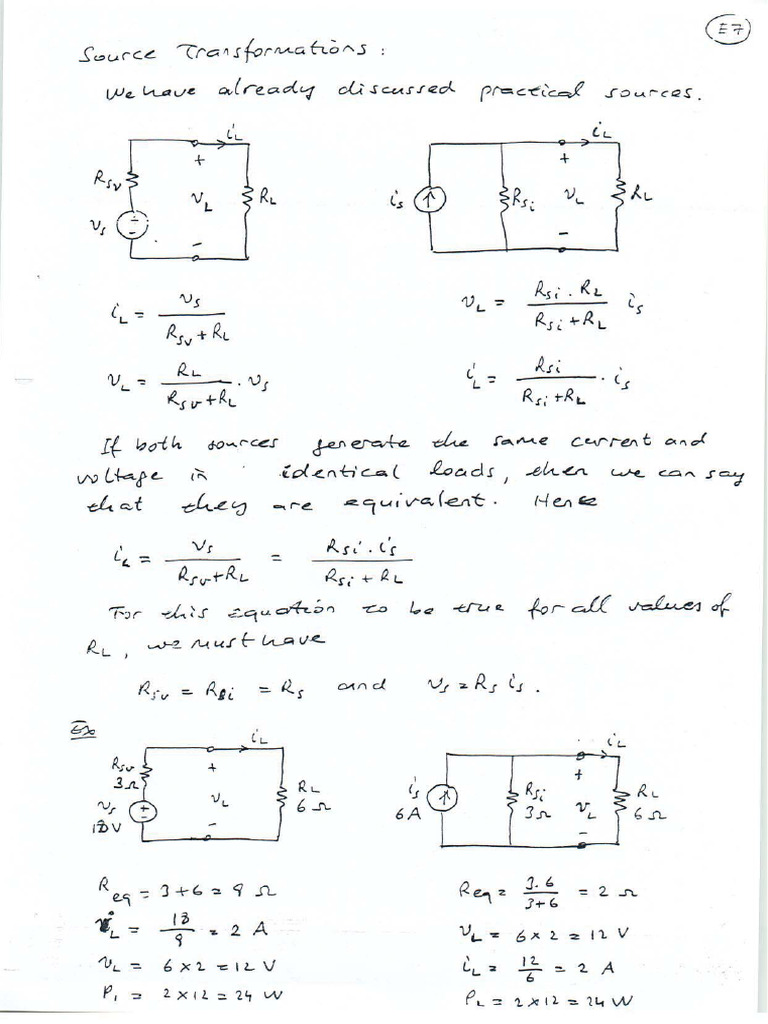 E7
Source Transformations:
We have already discussed practical sources.
iL
+
RSv
vL
RL
vs
-
iL
+
is
RSi
vL
RL
-
iL = vs / (RSv + RL)
vL = RL / (RSv + RL) · vs
vL = RSi · RL / (RSi + RL) is
iL = RSi / (RSi + RL) · is
If both sources generate the same current and
voltage in identical loads, then we can say
that they are equivalent. Hence
iL = vs / (RSv + RL) = RSi · is / (RSi + RL)
For this equation to be true for all values of
RL, we must have
RSv = RSi = RS and vs = RS is.
Ex
iL
RSv
3Ω
+
vL
RL
6Ω
vs
18V
-
iL
is
6A
RSi
3Ω
+
vL
RL
6Ω
-
Req = 3+6 = 9 Ω
iL = 18/9 = 2 A
vL = 6 x 2 = 12 V
PL = 2 x 12 = 24 W
Req = 3·6 / (3+6) = 2 Ω
vL = 6 x 2 = 12 V
iL = 12/6 = 2 A
PL = 2 x 12 = 24 W